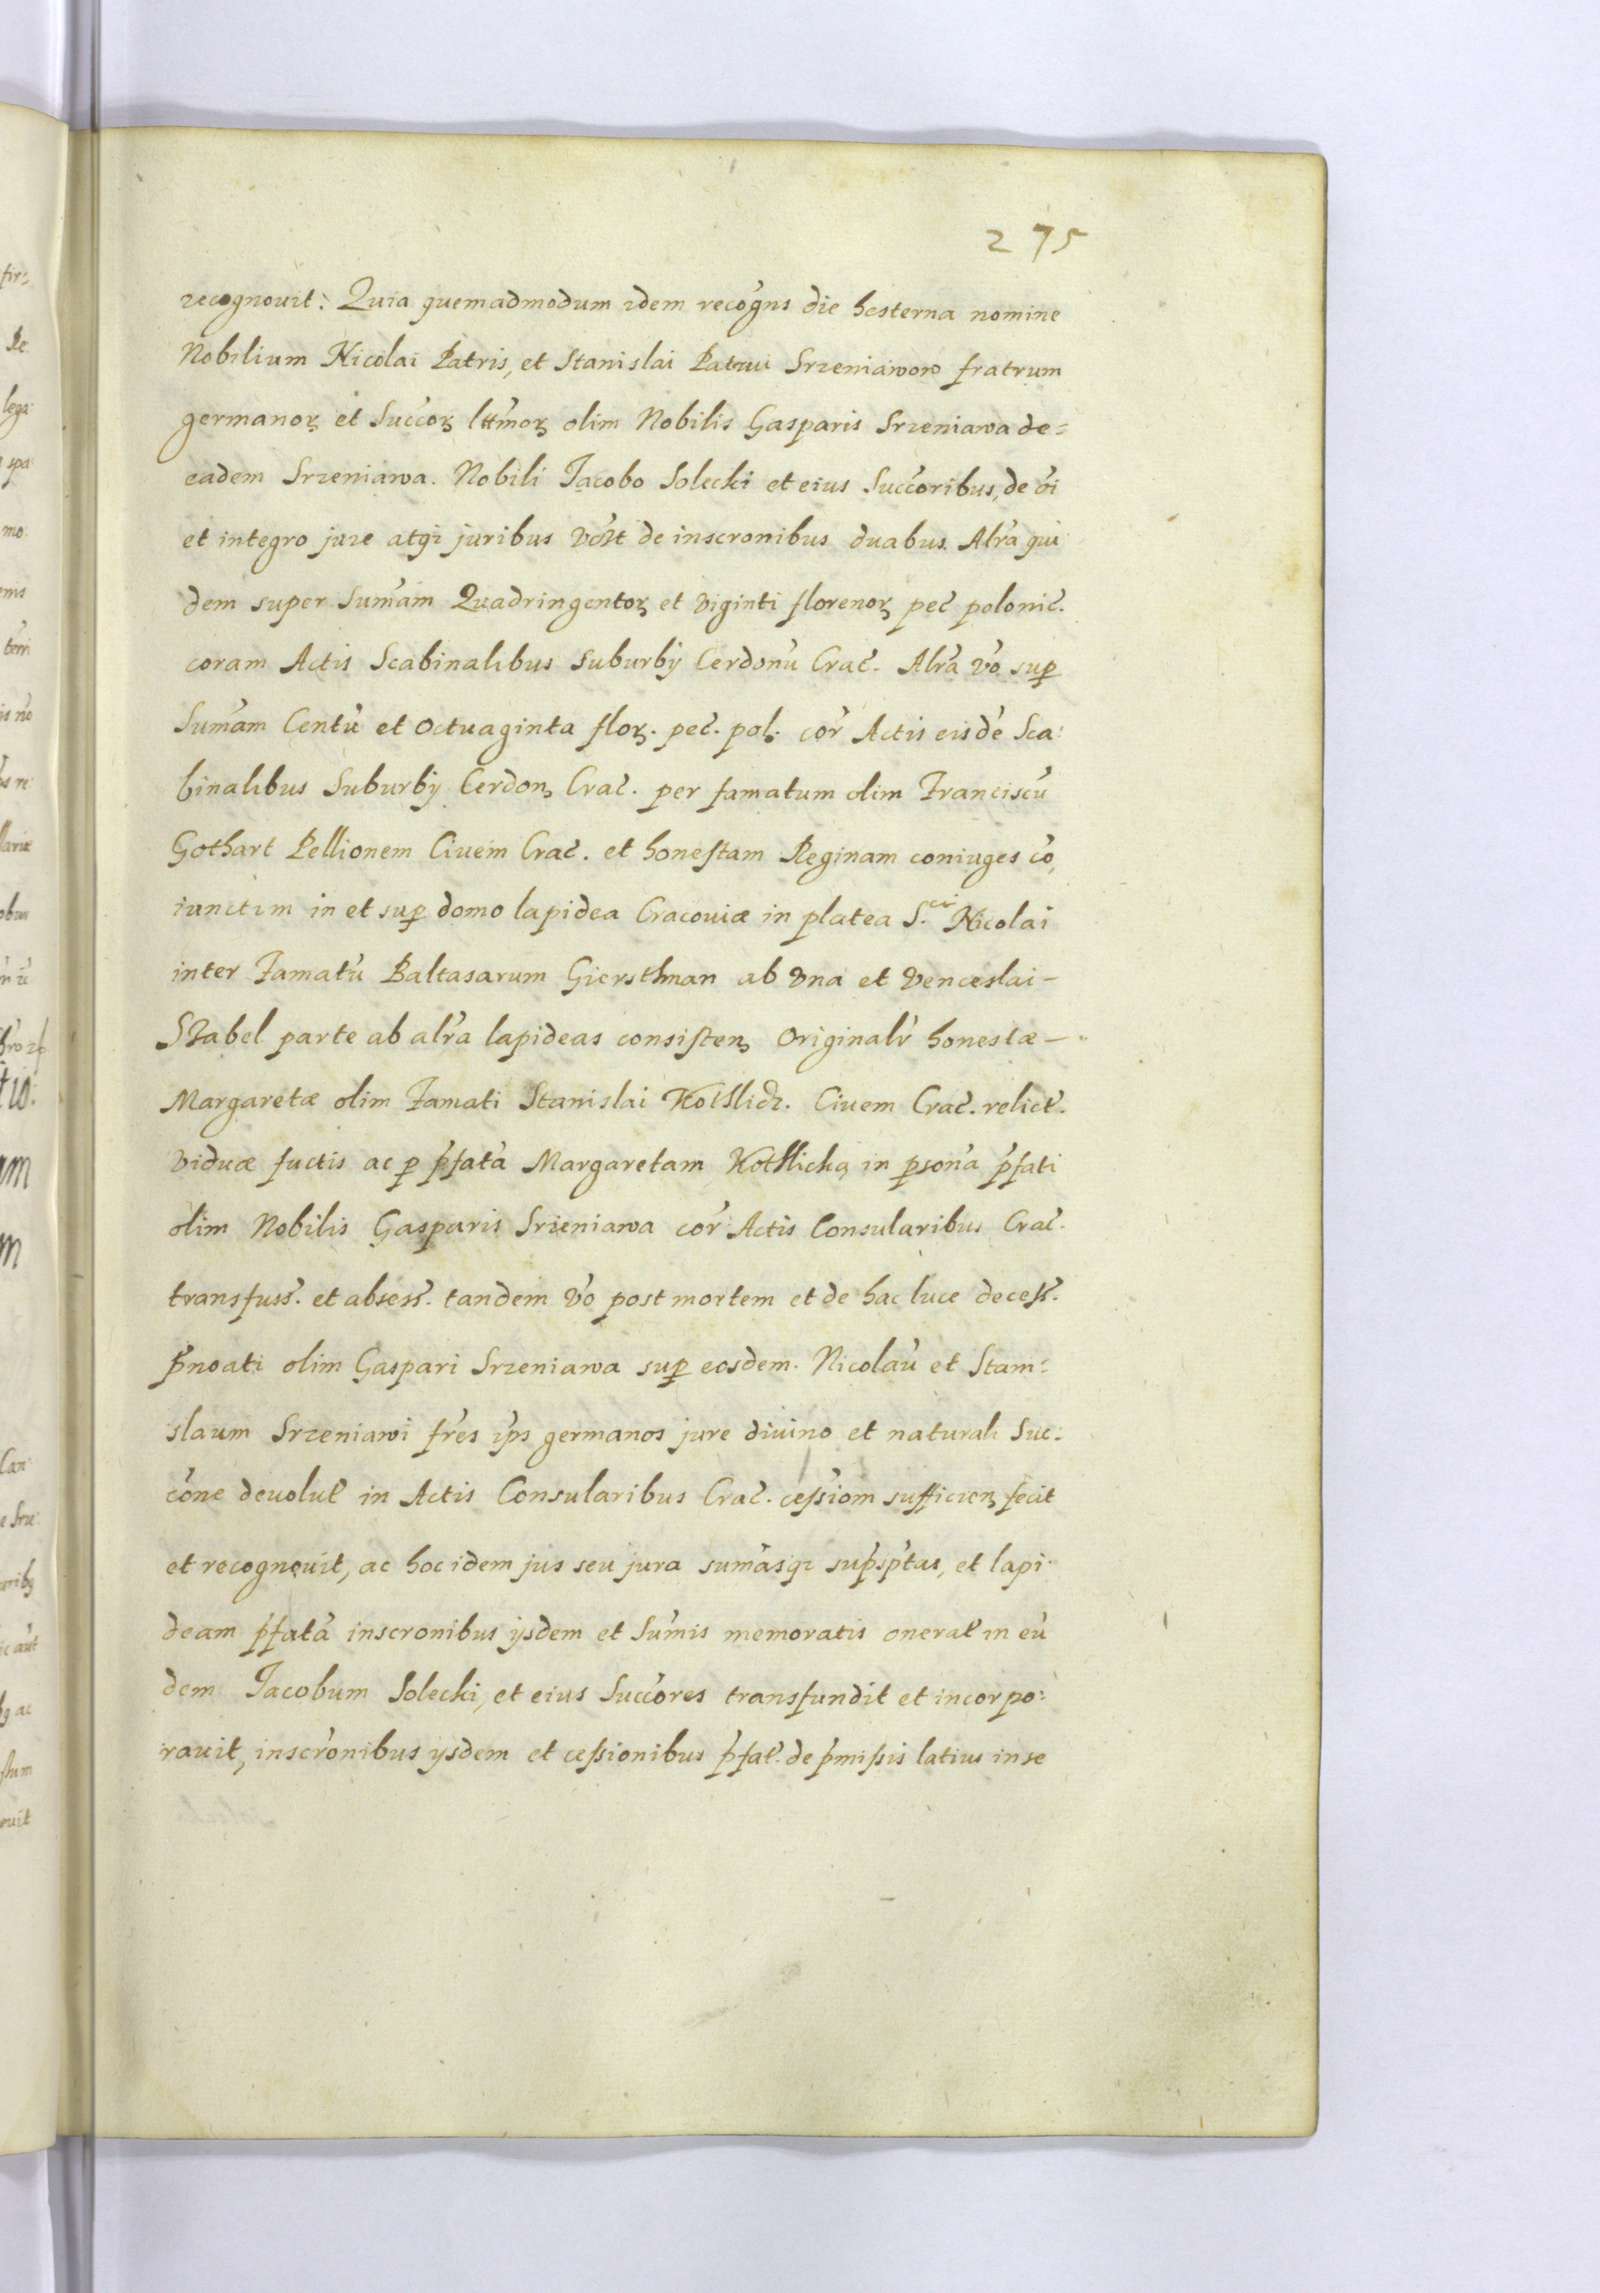 275
recognouit: Quia quemadmodum idem recogns die hesterna nomine
Nobilium Nicolai Patris, et Stanislai Patrui Srzeniawow fratrum
germanoꝝ et Succoꝝ lttmoꝝ olim Nobilis Gasparis Srzeniawa de=
eadem Srzeniawa. Nobili Jacobo Solecki et eius Succoribus, de oi
et integro jure atqꝫ juribus de inscronibus duabus. Alra qui
dem super Sumam Quadringentoꝝ et viginti florenoꝝ pec polonic.
coram Actis Scabinalibus Suburbij Cerdonu Crac. Alra vo suꝑ
Sumam Centu et octuaginta floꝝ. pec. pol. cor Actis eisde Sca:
binalibus Suburbij Cerdon, Crac. per famatum olim Franciscu
Gothart Pellionem Ciuem Crac. et honestam Reginam coniuges co,
iunctim in et suꝑ domo lapidea Cracouiæ in platea S.ci Nicolai
inter Famatu Baltasarum Giersthman ab vna et Venceslai –
Stabel parte ab alra lapideas consisten, Originalr honestæ –
Margaretæ olim Famati Stanislai Kothlick. Ciuem Crac. relict.
viduæ factis ac ꝑ pfata Margaretam Kothlicka in ꝑsona pfati
olim Nobilis Gasparis Srzeniawa cor Actis Consularibus Crac.
transfuss. et absess. tandem vo post mortem et de hac luce decess.
pnoati olim Gaspari Srzeniawa suꝑ eosdem. Nicolau et Stani=
slaum Srzeniawi fres ips germanos jure diuino et naturali Suc:
cone deuolut in Actis Consularibus Crac. cessiom sufficien, fecit
et recognouit, ac hoc idem jus seu jura sumasqꝫ supsptas, et lapi
deam pfata inscronibus ijsdem et Sumis memoratis onerat in eu
dem Jacobum Solecki, et eius Succores transfundit et incorpo:
rauit, inscronibus ijsdem et cessionibus pfat. de pmissis latius in se